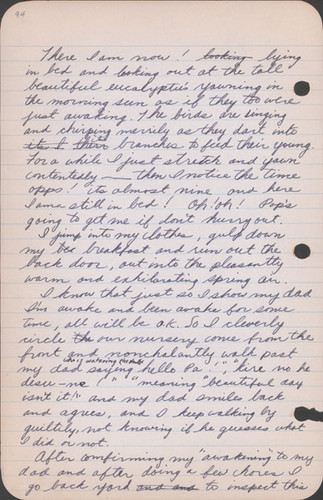 94
There I am now! looking lying
in bed and looking out at the tall
beautiful eucalyptis yawning in
the morning seen as if they too were
just awaking. The birds are singing
and chirping merrily as they dart into
branches to feed their young.
For a while I just stretch and yawn
contentedly — then I notice the time
opps! its almost nine and here
I am a still in bed! Oh! Oh! Pop's
going to get me if don't hurry out.
I jump into my clothes, gulp down
my breakfast and run out the
back door, out into the pleasantly
warm and exhilarating spring air.
I know that just so I show my dad
I'm awake and been awake for some
time, all will be o.k. So I cleverly
circle the our nursery come from the
front and nonchalantly walk past
my dad saying hello Pa! " like no he
" " meaning "beautiful day
isn't it!" and my dad smiles back
and agrees, and I keep walking by
guiltily, not knowing if he guesses what
I did or not.
After confirming my "awakening" to my
dad and after doing a few chores I
go back yard and and to inspect this